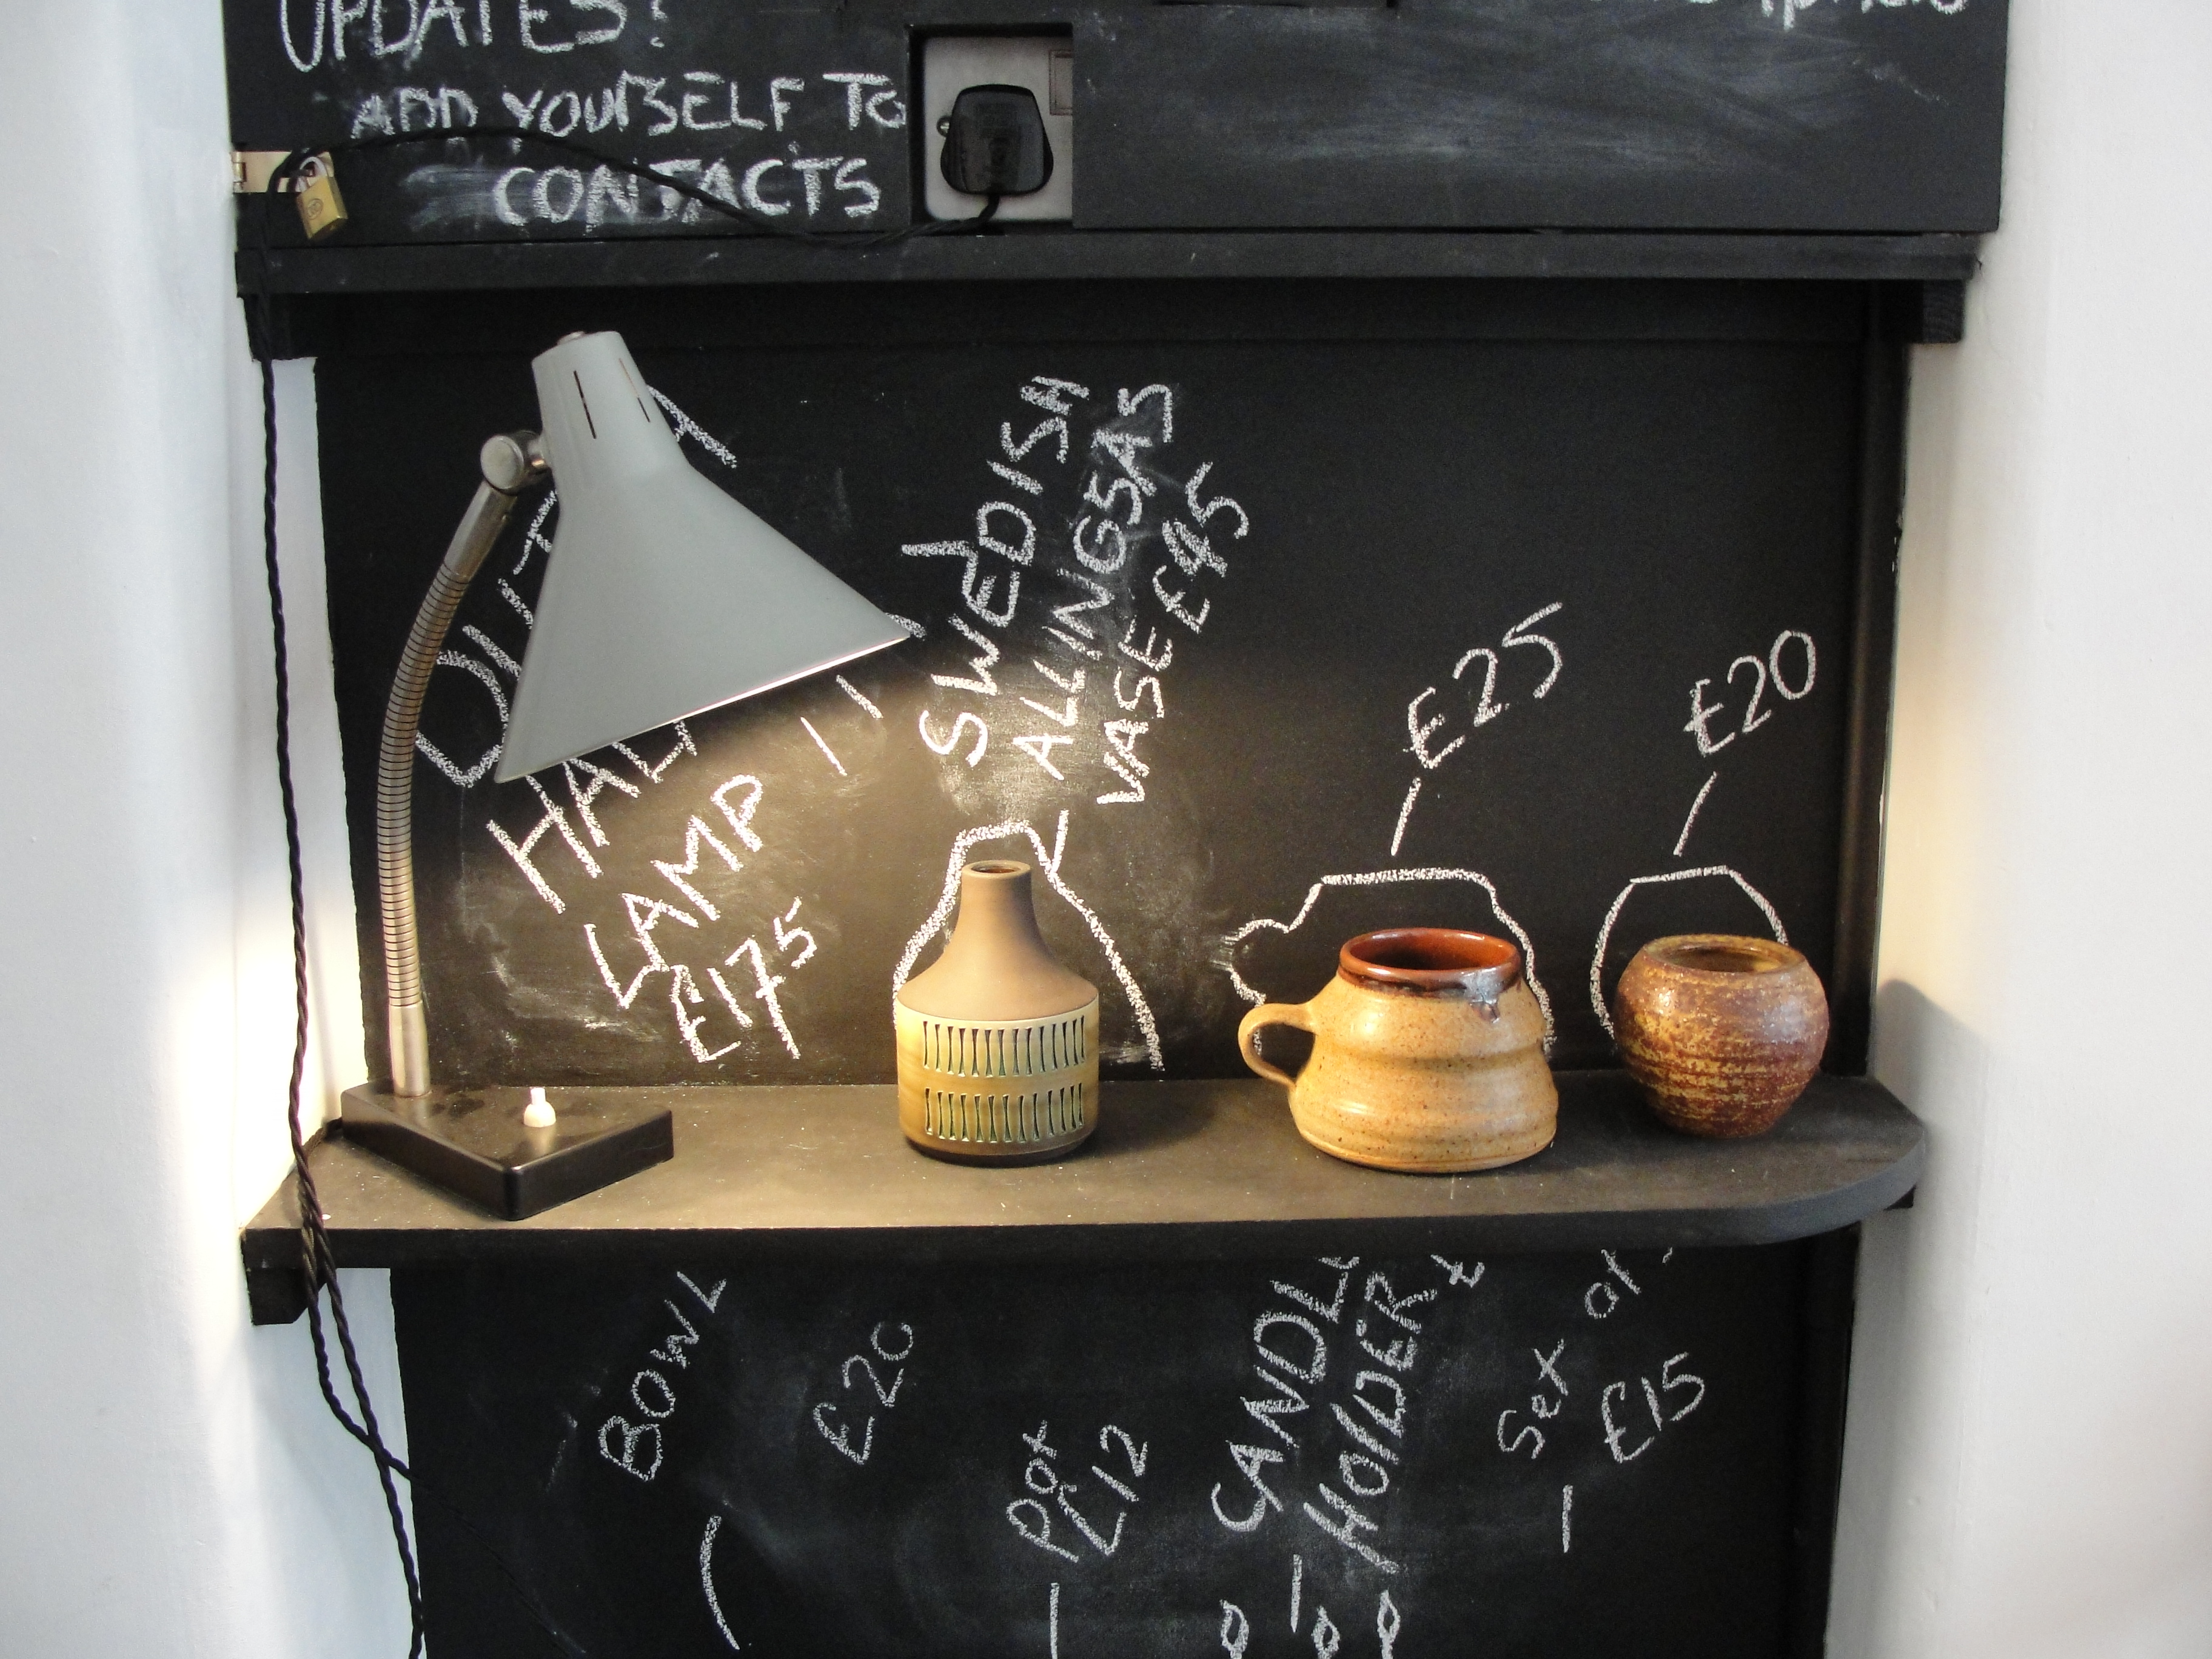 UPDATES?
ADD YOURSELF TO
CONTACTS
HAL
LAMP
£175
SWEDISH
ALLINGSAS
VASE £45
£25
£20
BOWL
£20
POT
£12
CANDL
HOLDER
Set of
£15